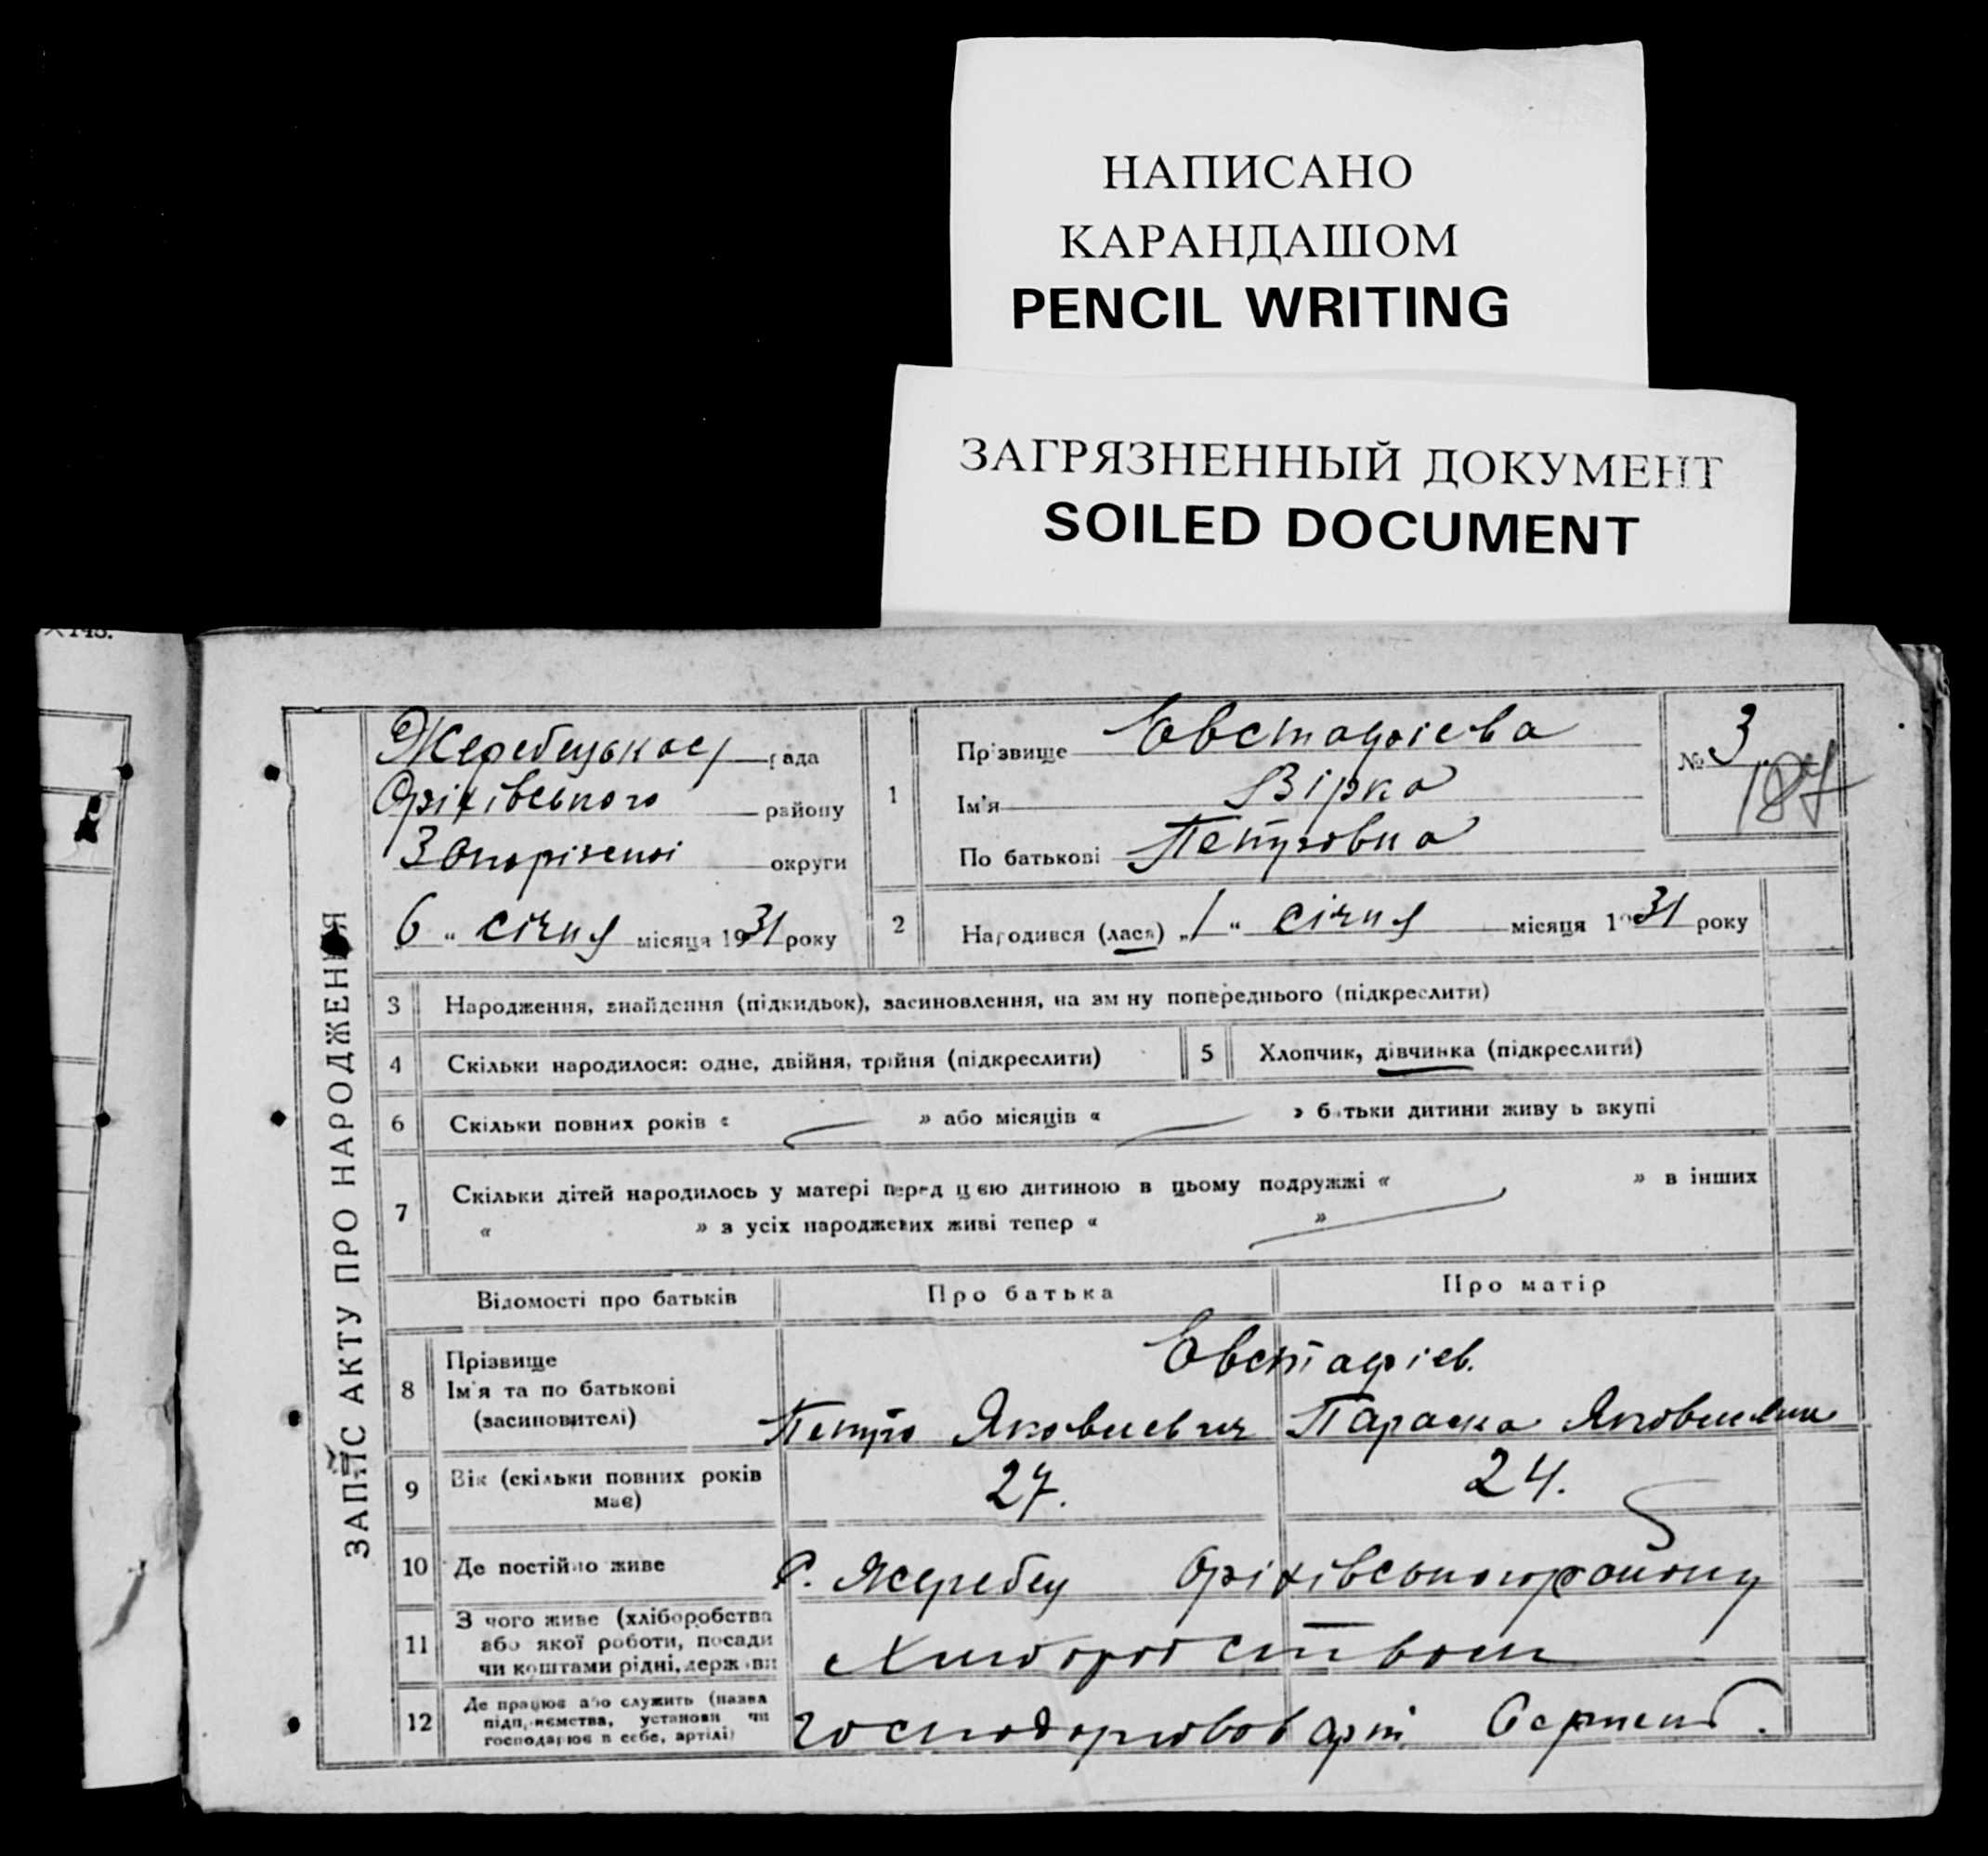 НАПИСАНО
КАРАНДАШОМ
PENCIL WRITING
ЗАГРЯЗНЕННЫЙ ДОКУМЕНТ
SOILED DOCUMENT
ЗАПИС АКТУ ПРО НАРОДЖЕННЯ
Жеребецька рада
Оріхівського району
Запорізької округи
6 " січня місяця 1931 року
1
Прізвище Євстафієва
Ім'я Вірка
По батькові Петровна
№ 3
187
2 Народився (лася) „1 " січня місяця 1931 року
3 Народження, знайдення (підкидьок), засиновлення, на зміну попереднього (підкреслити)
4 Скільки народилося: одне, двійня, трійня (підкреслити)
5 Хлопчик, дівчинка (підкреслити)
6 Скільки повних років « » або місяців « » батьки дитини живуть вкупі
7 Скільки дітей народилось у матері перед цією дитиною в цьому подружжі « » в інших
« » з усіх народжених живі тепер « »
Відомості про батьків Про батька Про матір
8 Прізвище
Ім'я та по батькові
(засиновителі)
Євстафієв.
Петро Яковлевич Параска Яковлевна
9 Вік (скільки повних років має) 27. 24.
10 Де постійно живе С. Жеребец Оріхівського району
11 З чого живе (хліборобства
або якої роботи, посади
чи коштами рідні, держави
Хліборобством
12 Де працює або служить (назва
підприємства, установи чи
господарює в себе, артілі)
арт.